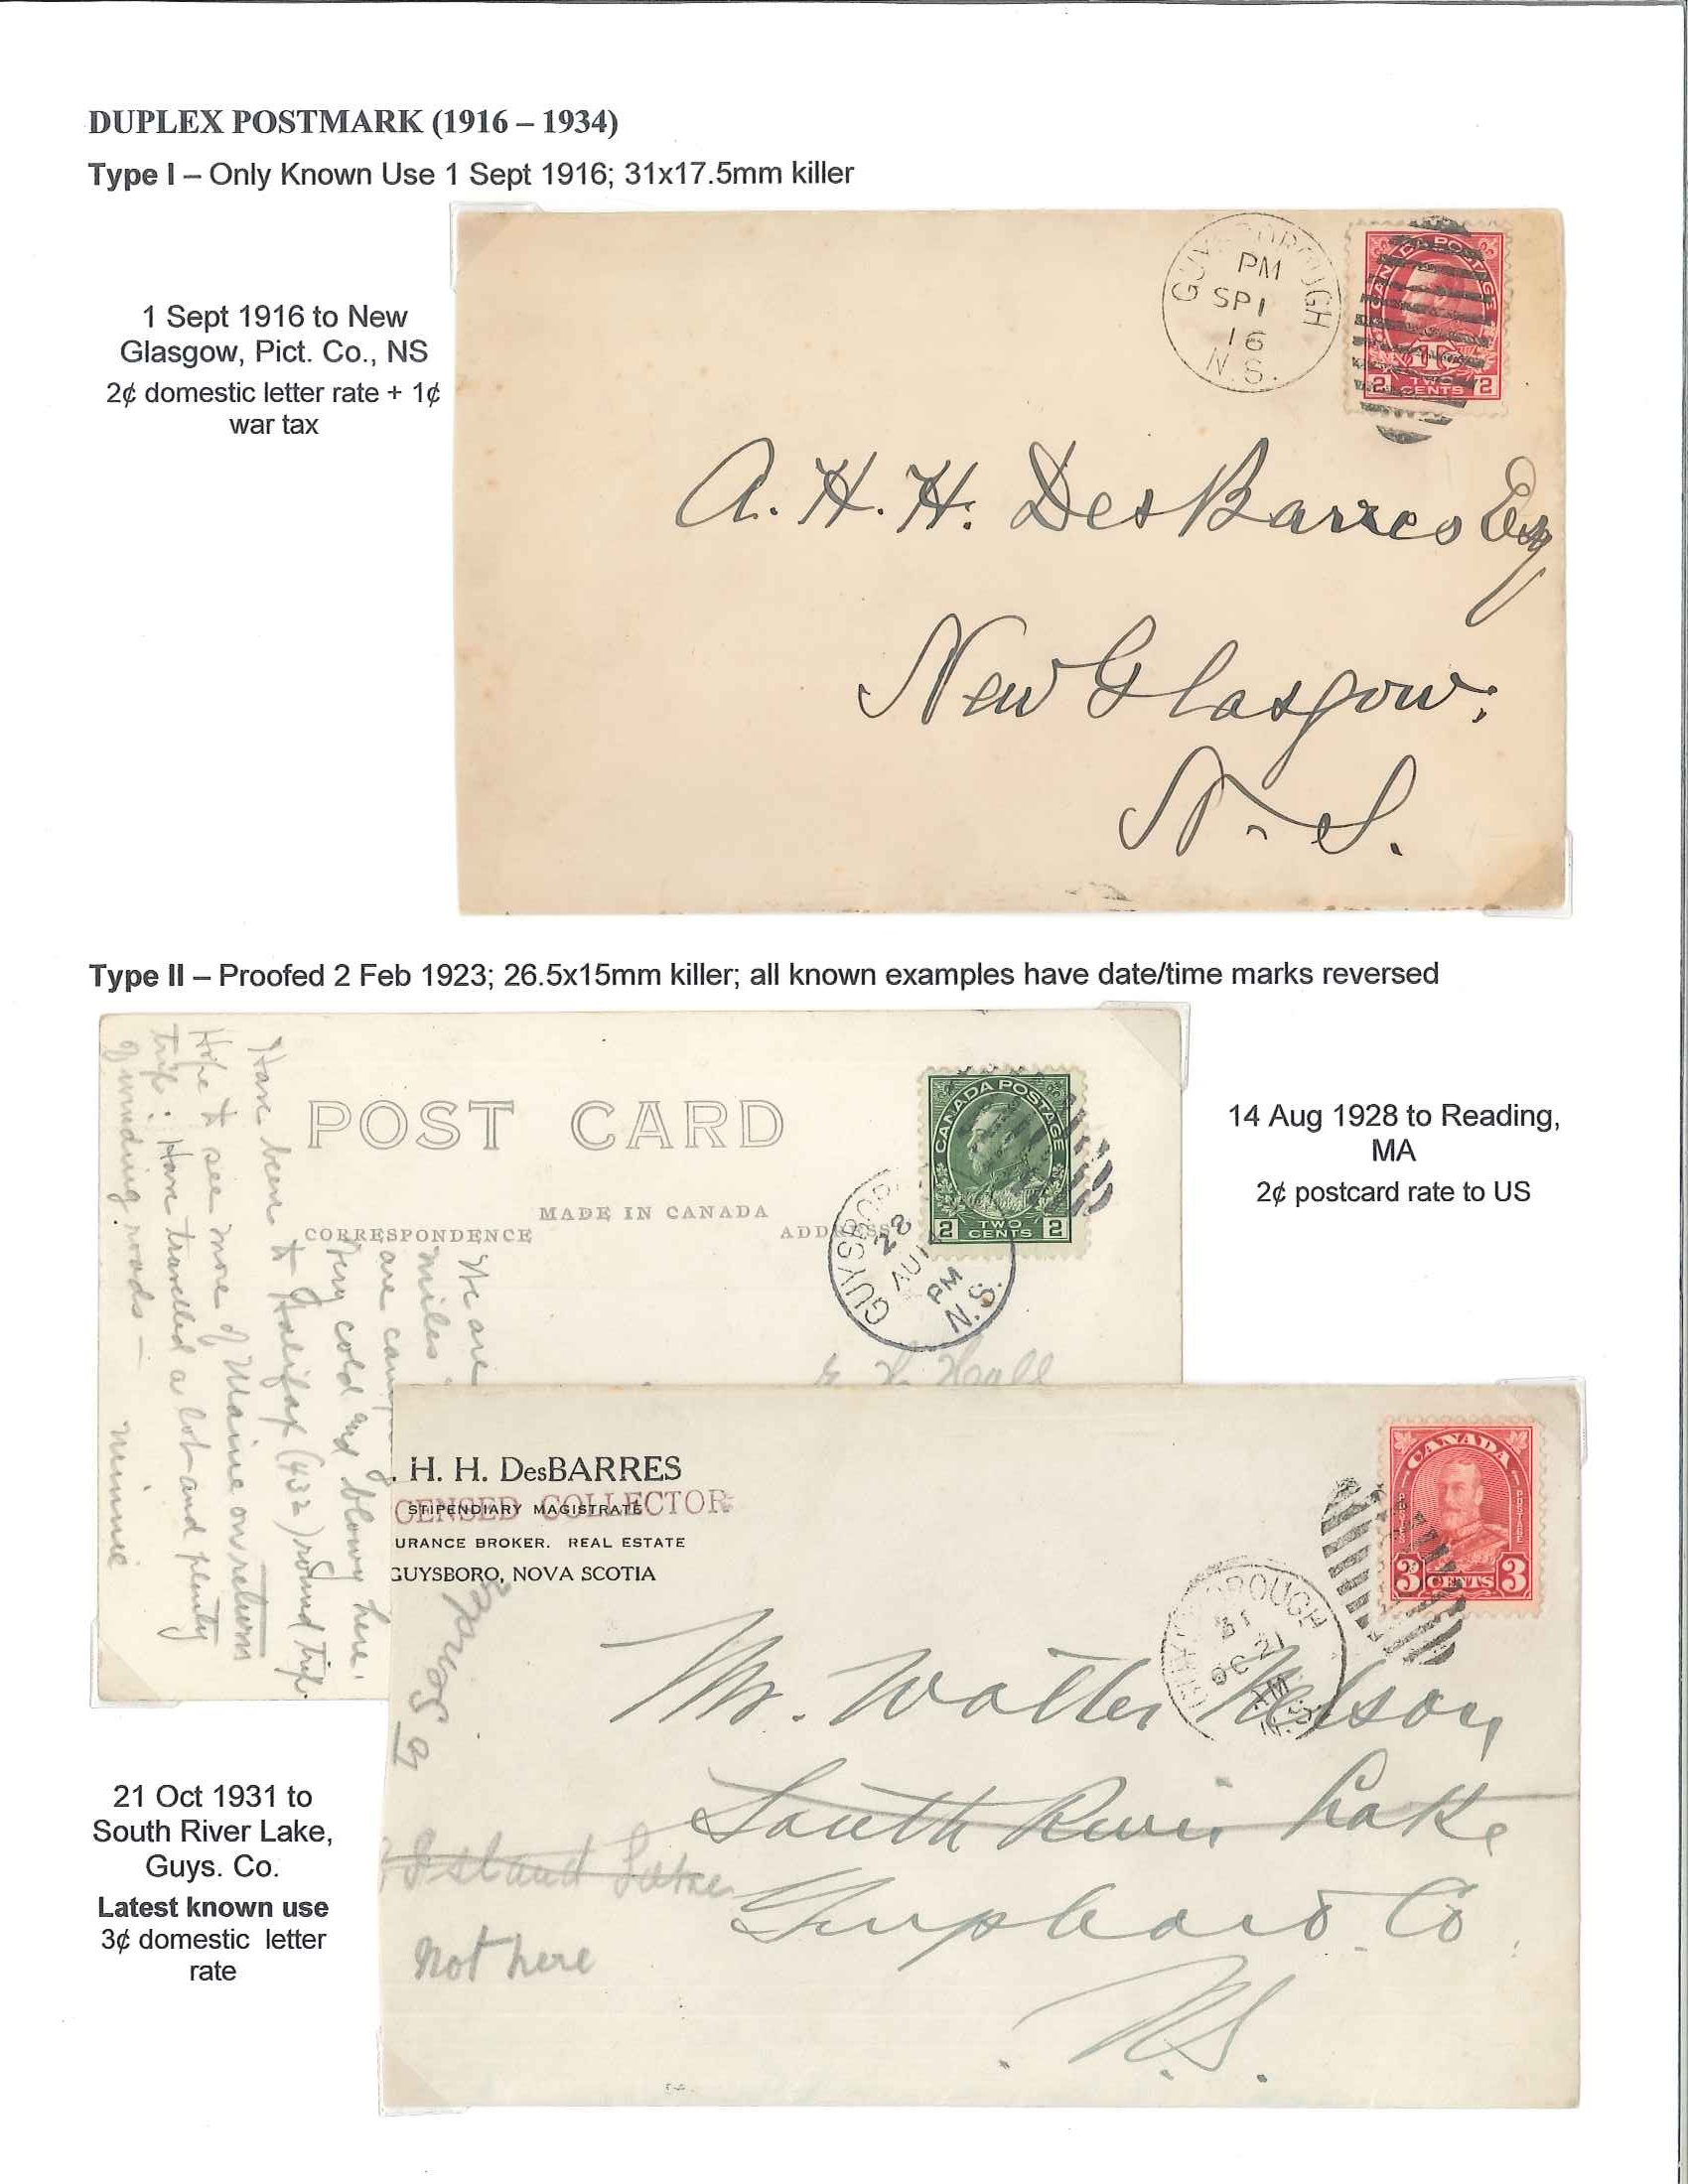 DUPLEX POSTMARK (1916 – 1934)
Type I – Only Known Use 1 Sept 1916; 31x17.5mm killer
1 Sept 1916 to New
Glasgow, Pict. Co., NS
2¢ domestic letter rate + 1¢
war tax
GUYSBOROUGH
PM
SP 1
16
N.S.
CANADA POSTAGE
1TC
2 TWO CENTS 2
A. H. H. DesBarres Esq
New Glasgow.
N. S.
Type II – Proofed 2 Feb 1923; 26.5x15mm killer; all known examples have date/time marks reversed
POST CARD
MADE IN CANADA
CORRESPONDENCE
ADDRESS
CANADA POSTAGE
2 TWO CENTS 2
GUYSBORO
28
AU 14
PM
N.S.
We are
miles
are camping
Very cold and blowy here.
Have been to Halifax (432) round trip.
Hope to see more of Maine on return
trip. Have travelled a lot and plenty
of winding roads —
Minnie
Hall
14 Aug 1928 to Reading,
MA
2¢ postcard rate to US
. H. H. DesBARRES
CENSED COLLECTOR
STIPENDIARY MAGISTRATE
URANCE BROKER. REAL ESTATE
GUYSBORO, NOVA SCOTIA
CANADA
POSTES POSTAGE
3 CENTS 3
GUYSBOROUGH
31
OC 21
AM
N.S.
Mr. Walter Nelson,
South River Lake
Guysboro Co.
N.S.
Island Lake
Not here
21 Oct 1931 to
South River Lake,
Guys. Co.
Latest known use
3¢ domestic letter
rate